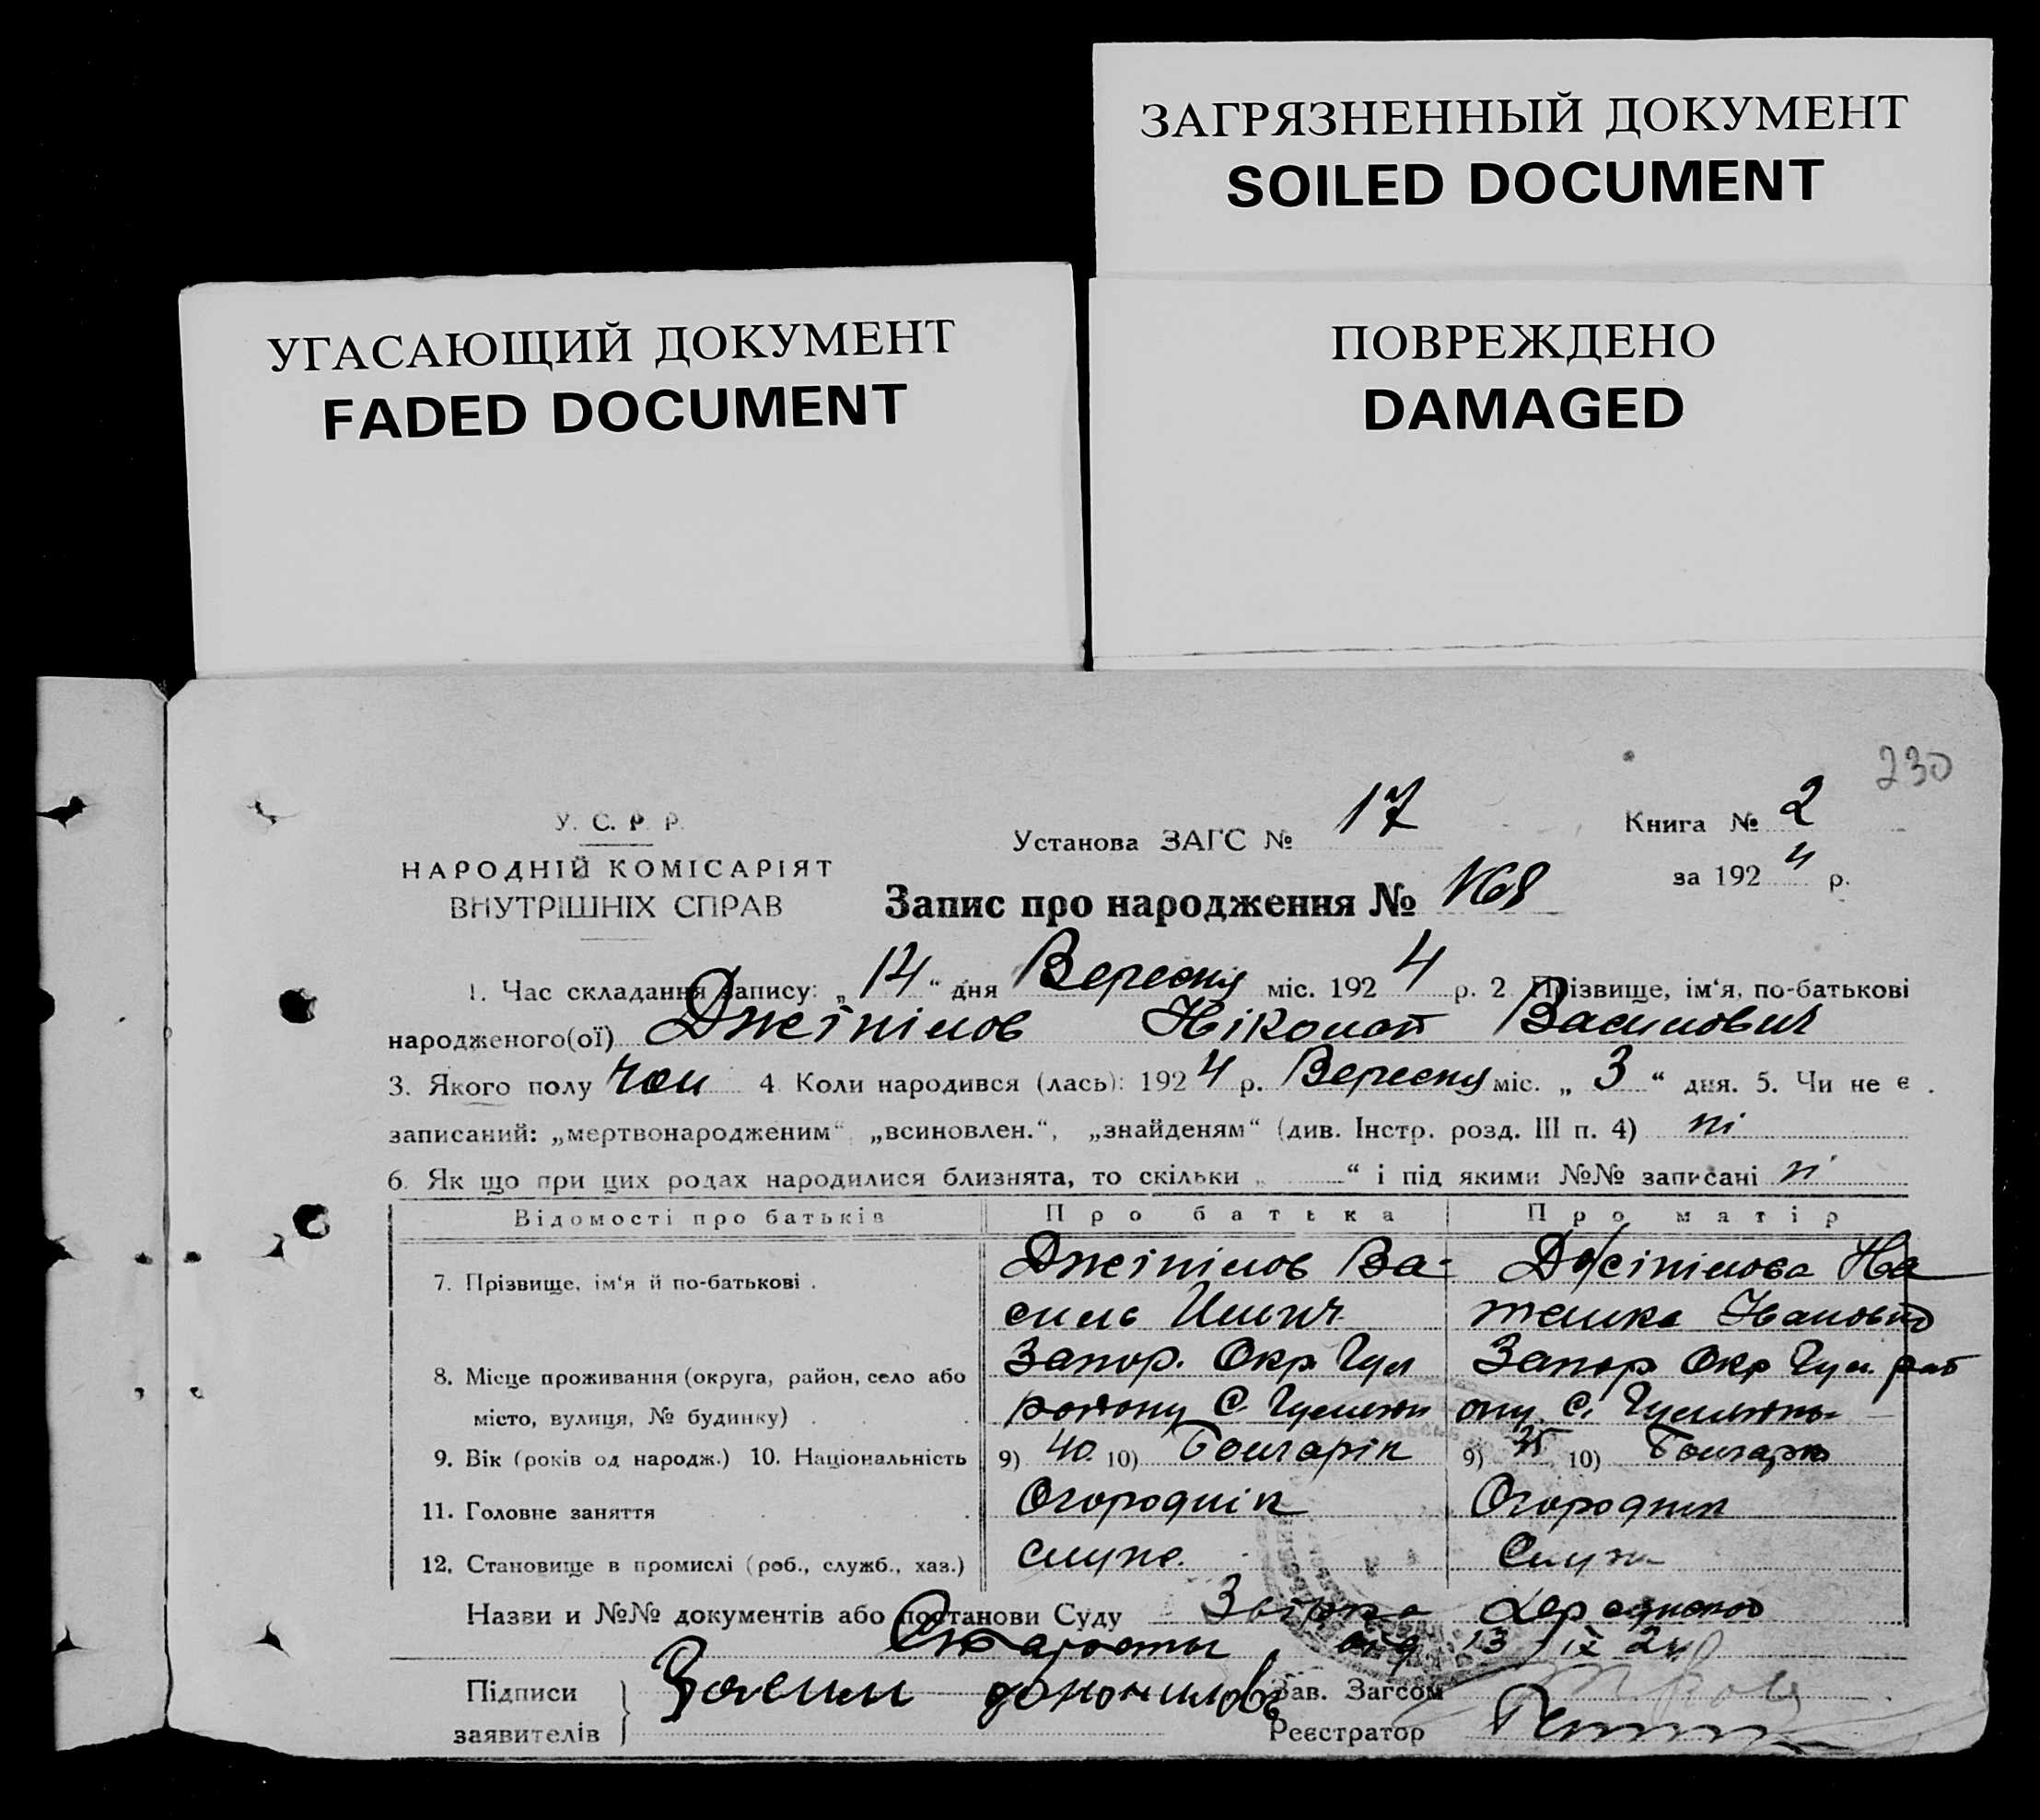 ЗАГРЯЗНЕННЫЙ ДОКУМЕНТ
SOILED DOCUMENT
УГАСАЮЩИЙ ДОКУМЕНТ
FADED DOCUMENT
ПОВРЕЖДЕНО
DAMAGED
230
У. С. Р. Р.
НАРОДНІЙ КОМІСАРІЯТ
ВНУТРІШНІХ СПРАВ
Установа ЗАГС № 17
Книга № 2
за 1924 р.
Запис про народження № 168
1. Час складання запису: „14“ дня Вересня міс. 1924 р. 2 Прізвище, ім‘я, по-батькові
народженого(ої) Джінілов Ніколай Васильович
3. Якого полу чол 4 Коли народився (лась): 1924 р. Вересня міс. „3“ дня. 5. Чи не є
записаний: „мертвонародженим“, „всиновлен.“, „знайденям“ (див. Інстр. розд. III п. 4) ні
6. Як що при цих родах народилися близнята, то скільки „ “ і під якими №№ записані ні
Відомості про батьків Про батька Про матір
7. Прізвище, ім‘я й по-батькові . Джінілов Ва- Джінілова На
силь Ильич Ивановно
8. Місце проживання (округа, район, село або Запор. Окр. Гул Запор Окр Гул. рай
місто, вулиця, № будинку) . району С. ону С.
9. Вік (років од народж.) 10. Національність 9) 40 10) Болгарін 9) 35 10) Болгарка
11. Головне заняття Огороднік Огородник
12. Становище в промислі (роб., служб., хаз.) служ. Служ
Назви и №№ документів або постанови Суду
Старосты од 13 IX 24
Підписи
заявителів
Зав. Загсом
Реєстратор